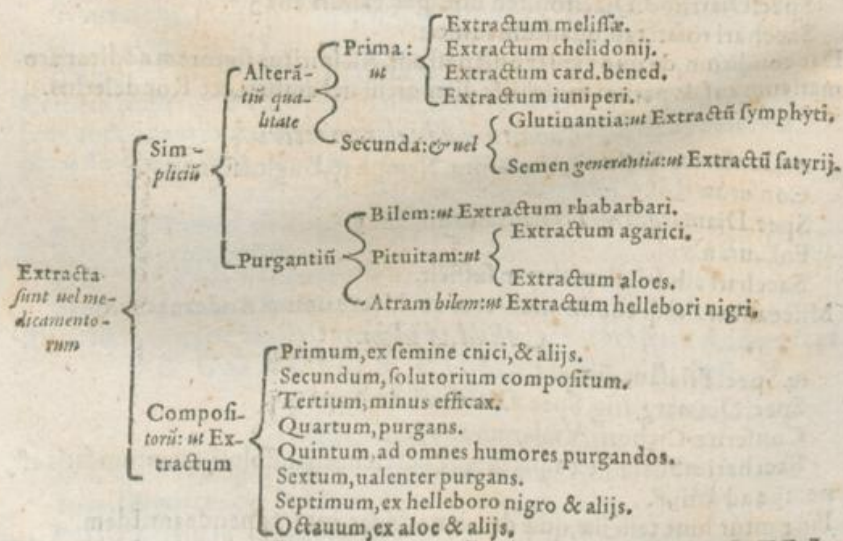 Extracta
sunt uel me-
dicamento-
rum
Sim-
pliciū
Alterā-
tiū qua-
litate
Prima:
ut
Extractum melissæ.
Extractum chelidonij.
Extractum card.bened.
Extractum iuniperi.
Secunda:& uel
Glutinantia:ut Extractū symphyti.
Semen generantia:ut Extractū satyrij.
Purgantiū
Bilem:ut Extractum rhabarbari.
Pituitam:ut
Extractum agarici.
Extractum aloes.
Atram bilem:ut Extractum hellebori nigri.
Composi-
torū: ut Ex-
tractum
Primum,ex semine cnici,& alijs.
Secundum,solutorium compositum.
Tertium,minus efficax.
Quartum,purgans.
Quintum,ad omnes humores purgandos.
Sextum,ualenter purgans.
Septimum,ex helleboro nigro & alijs.
Octauum,ex aloe & alijs.